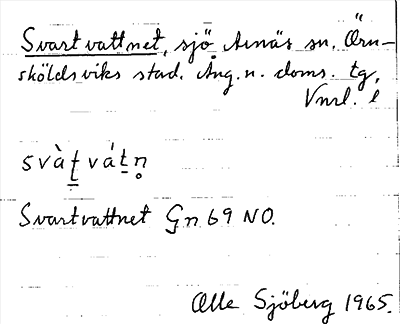 Svartvattnet, sjö Arnäs sn. Örn-
sköldsviks stad. Ång. n. doms. tg,
Vnrl. l
svàt̲ vát̲n̥
Svartvattnet Gn 69 NO.
Olle Sjöberg 1965.